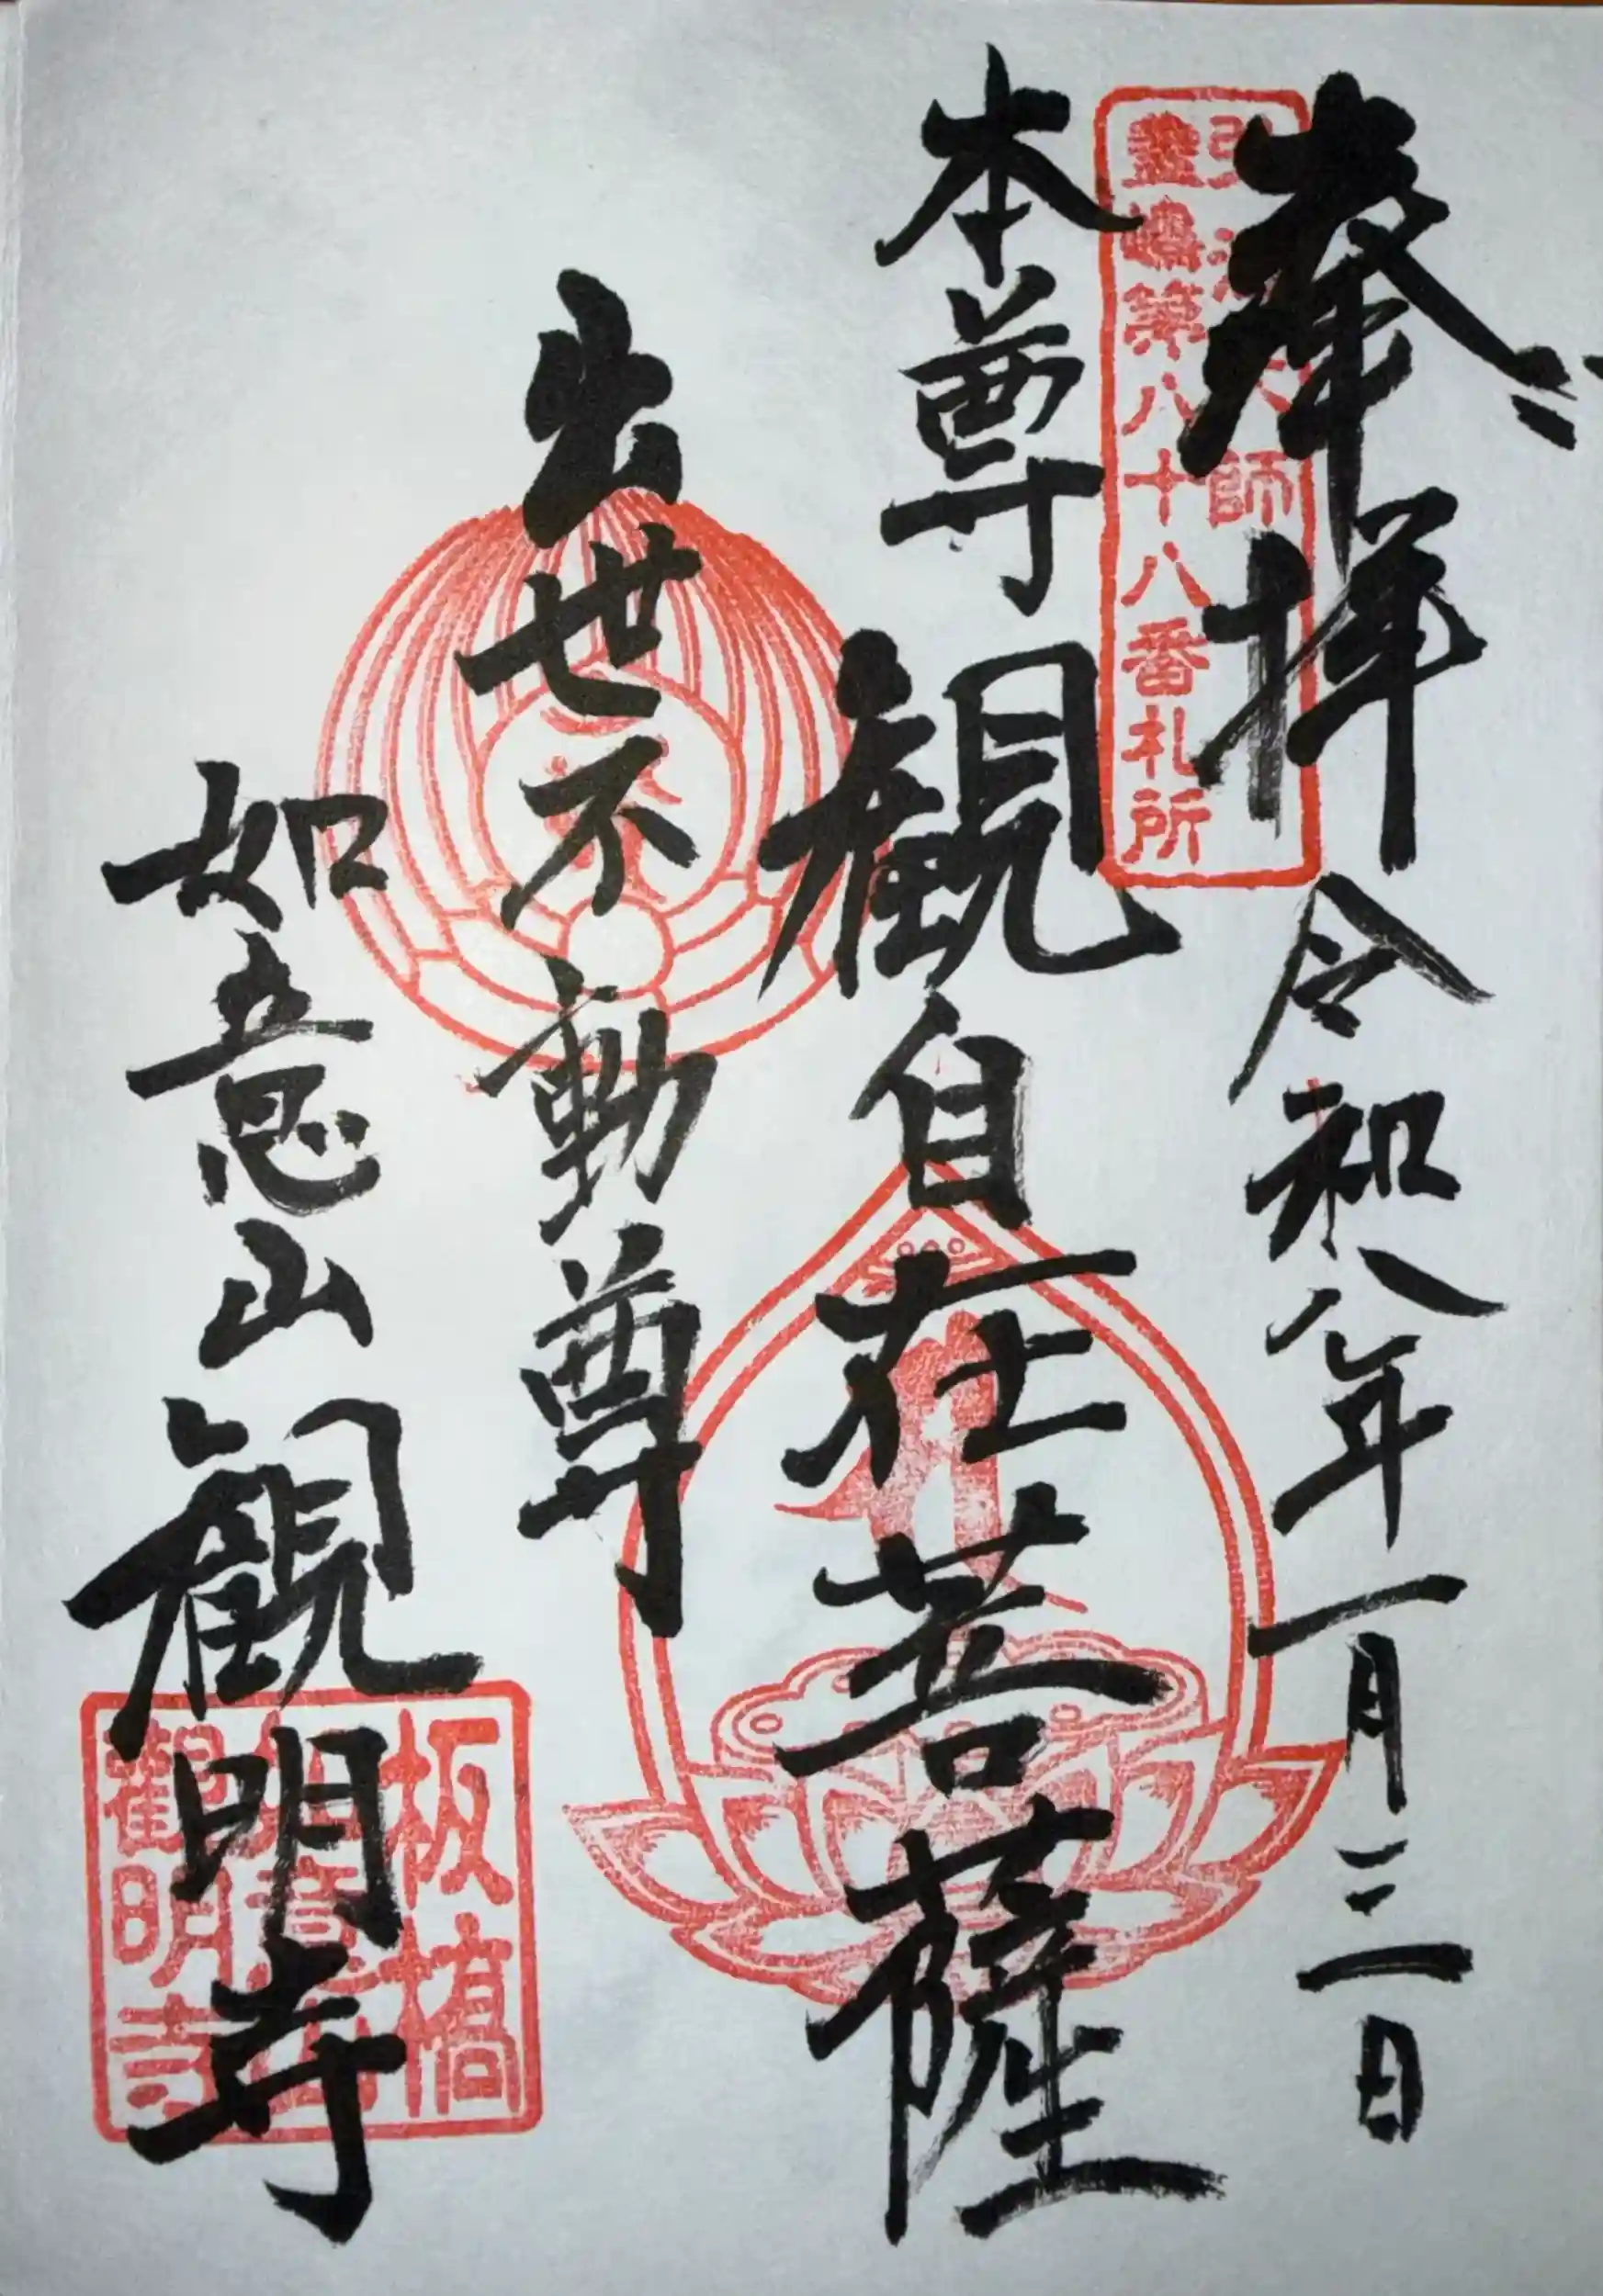 奉拝 令和八年一月三日
弘法大師
霊場第八十八番札所
本尊 観自在菩薩
出世不動尊
如意山 観明寺
板橋
如意山
觀明寺